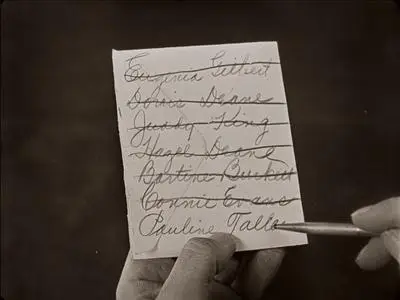 Eugenia Gilbert
Doris Deane
Judy King
Hazel Deane
Bartine Burkett
Connie Evans
Pauline Talla